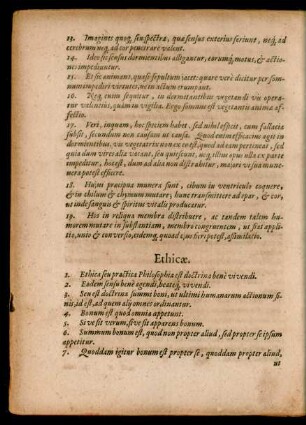 13. Imagines quoq, seu spectra, quæ sensus exterius feriunt, neq, ad
cerebrum neq, ad cor penetrare valent.
14. Ideo & sensus dormientibus alligantur, earumq, motus, & actio-
nes impediuntur.
15. Et sic animans, quasi sepultum jacet: quare verè dicitur per som-
num impediri virtutes, ne in actum erumpant.
16. Neq enim sequitur, in dormientibus vegetandi vis opera-
tur validius, quàm in vigilia. Ergo somnus est vegetantis animæ af-
fectio.
17. Veri, inquam, hoc speciem habet, sed nihil efficit, cum fallacia
subsit, secundum non causam ut causa. Quod enim efficacius agit in
dormientibus, vis vegetatrix non ex eo fit, quod ad eam pertineat, sed
quia dum viret alia vacant, seu quiescunt, neq, illius opus ulla ex parte
impeditur, hoc est, dum ad alia non distrahitur, majore vi sua mune-
ra potest efficere.
18. Hujus præcipua munera sunt, cibum in ventriculo coquere,
& in chilum & chymum mutare, hunc transmittere ad epar, & cor,
ut inde sanguis & spiritus vitalis producatur.
19. His in reliqua membra distribuere, ac tandem talem hu-
morem mutare in substantiam, membro congruentem, ut fiat applica-
tio, unio & conversio, eademq, quod ajus hic epost est, assimilatio.
Ethicæ.
1. Ethica seu practica Philosophia est doctrina benè vivendi.
2. Eadem sensu benè agendi, beateq, vivendi.
3. Seu est doctrina summi boni, ut ultimi humanarum actionum fi-
nis, id est, ad quem alij omnes ordinantur.
4. Bonum est quod omnia appetunt.
5. Sive sit verum, sive sit apparens bonum.
6. Summum bonum est, quod non propter aliud, sed propter se ipsum
appetitur.
7. Quoddam igitur bonum est propter se, quoddam propter aliud,
ut